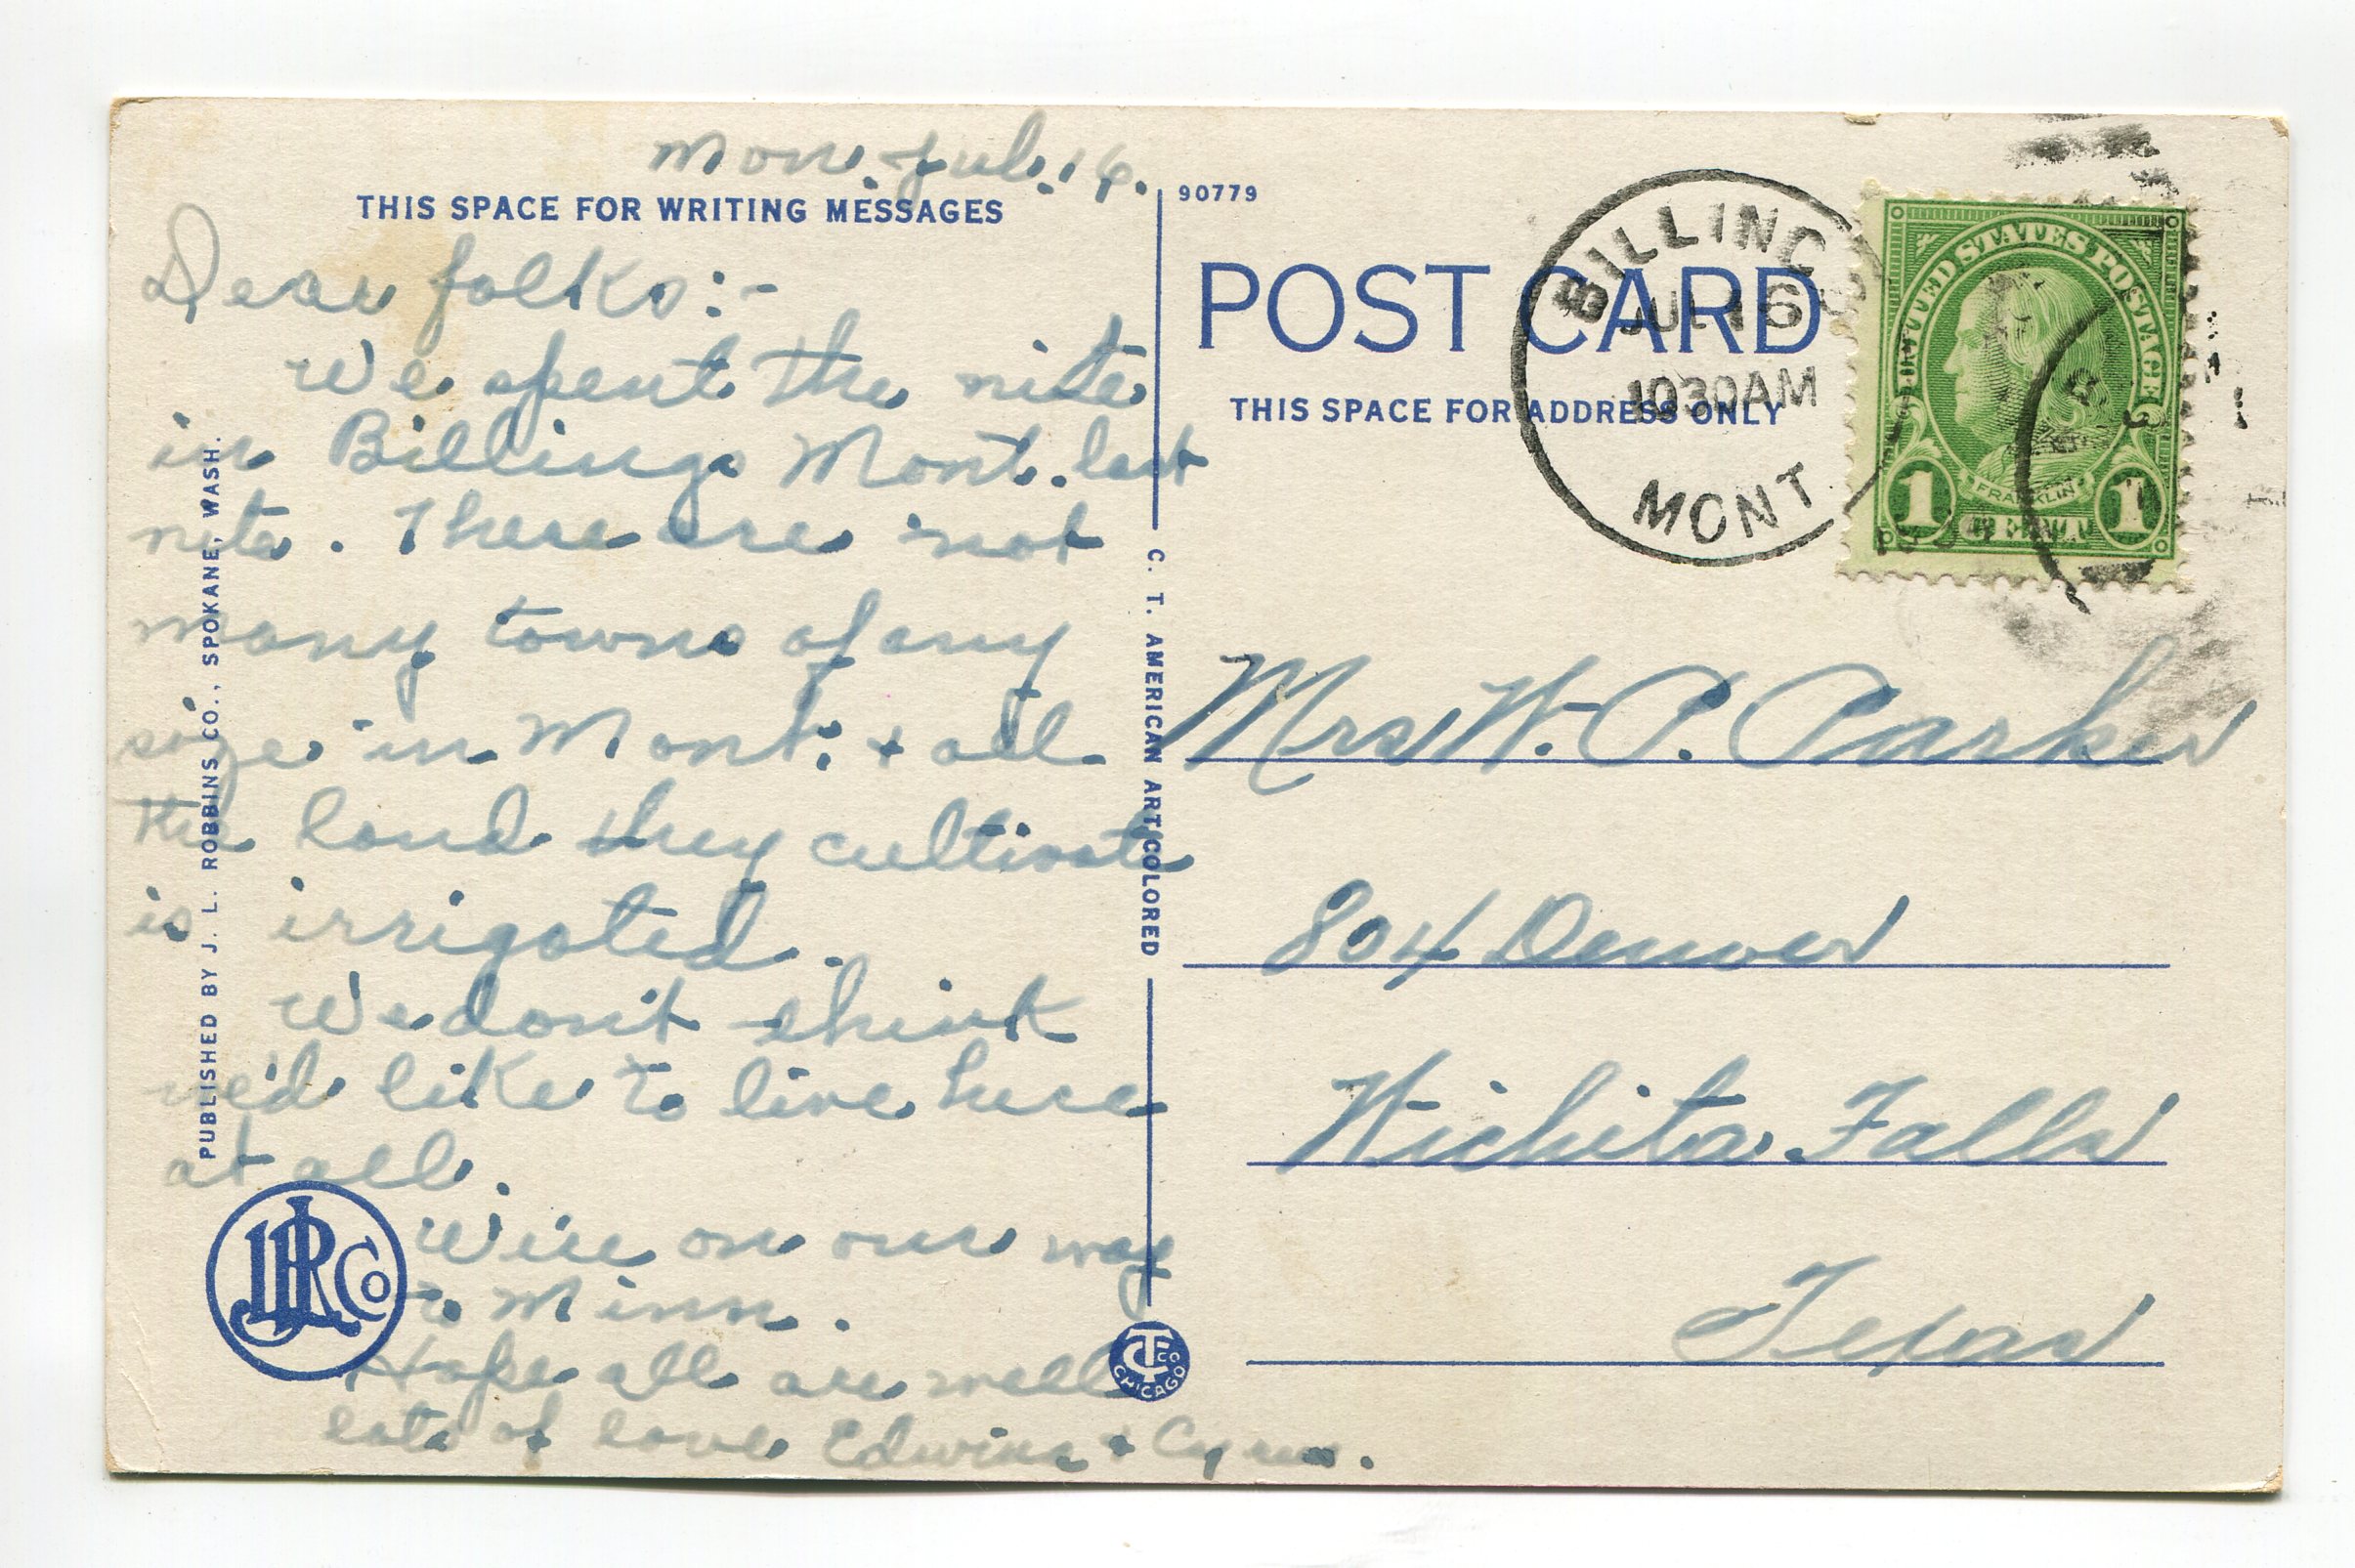 Mon. Jul. 16.
THIS SPACE FOR WRITING MESSAGES
Dear folks:-
We spent the nite
in Billings Mont. last
nite. There are not
many towns of any
size in Mont. + all
the land they cultivate
is irrigated.
We don't think
we'd like to live here
at all.
We're on our way
to Minn.
Hope all are well
lots of love Edwina + Cyrus.
PUBLISHED BY J. L. ROBBINS CO., SPOKANE, WASH.
JLR Co
C. T. AMERICAN ART COLORED
CT CO
CHICAGO
90779
POST CARD
THIS SPACE FOR ADDRESS ONLY
BILLINGS
JUL 16
10 30 AM
MONT
UNITED STATES POSTAGE
FRANKLIN
1 1
Mrs W. P. Parker
804 Denver
Wichita Falls
Texas